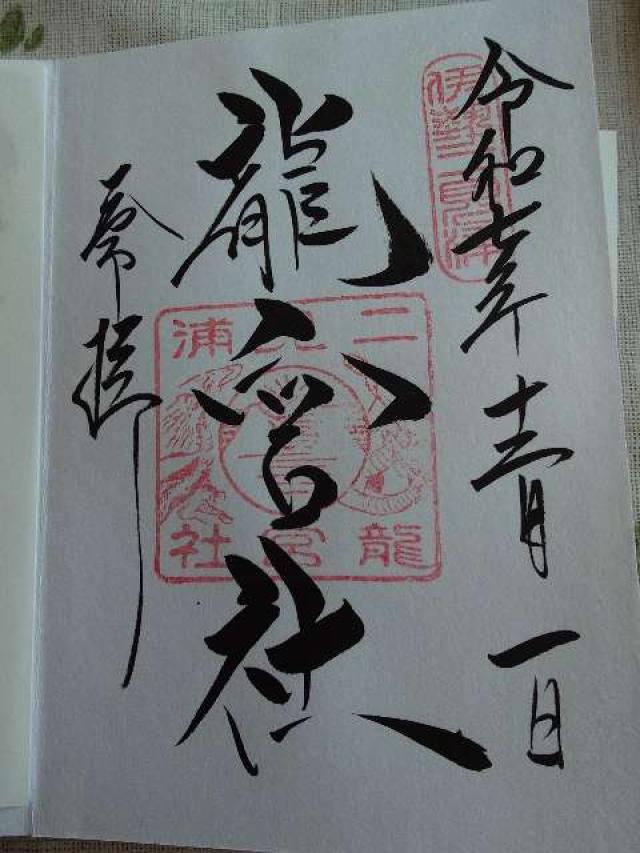 伊勢二見浦
令和七年十二月一日
龍宮社
二見浦
龍宮社
奉拝